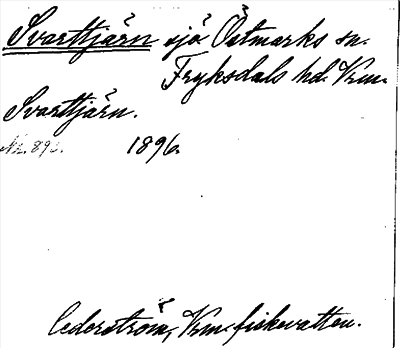 Svarttjärn sjö Östmarks sn.
Fryksdals hd. Vrm.
Svarttjärn.
1896.
Cederström, Vrm. fiskevatten.